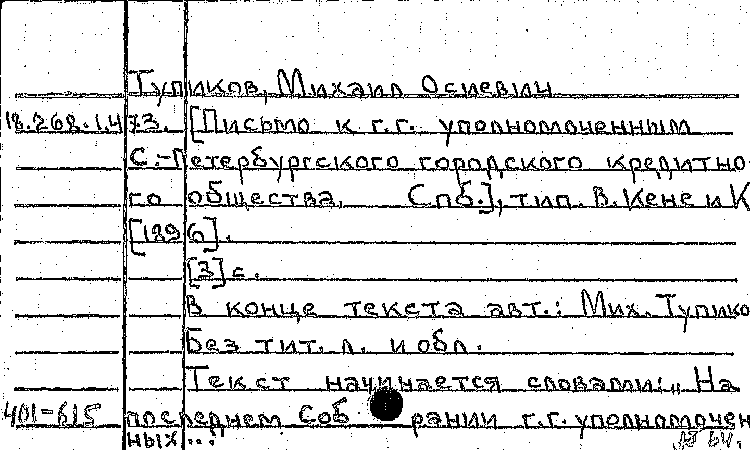 Тупиков, Михаил Осиевич
18.268.1.473. [Письмо к г.г. уполномоченным
С.-Петербургского городского кредитно
го общества. Спб.], тип. В. Кене и К
[1896].
[3] с.
В конце текста авт.: Мих. Тупико
Без тит. л. и обл.
Текст начинается словами: „На
401-615 последнем Соб рании г.г. уполномочен
ных...: